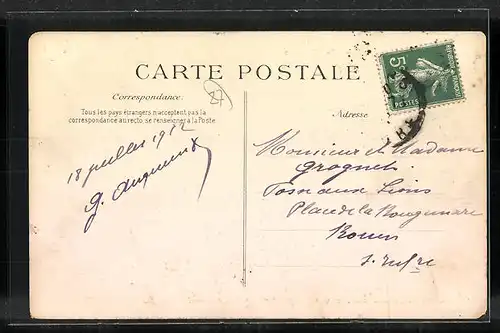 CARTE POSTALE
Correspondance:
Tous les pays étrangers n'acceptent pas la
correspondance au recto, se renseigner à la Poste
Adresse
5c
POSTES
18 juillet 1912
G.
Monsieur et Madame
Grognet
Fosse aux Lions
Place de la Rougemare
Rouen
S. Infre